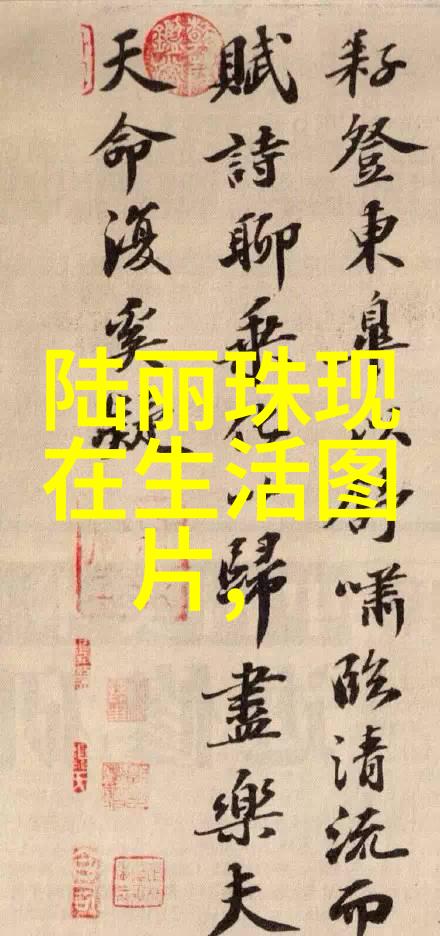 耔登東皋以舒嘯臨清流而
賦詩聊乘化以歸盡樂夫
天命復奚疑
陆丽珠现
在生活图
片,